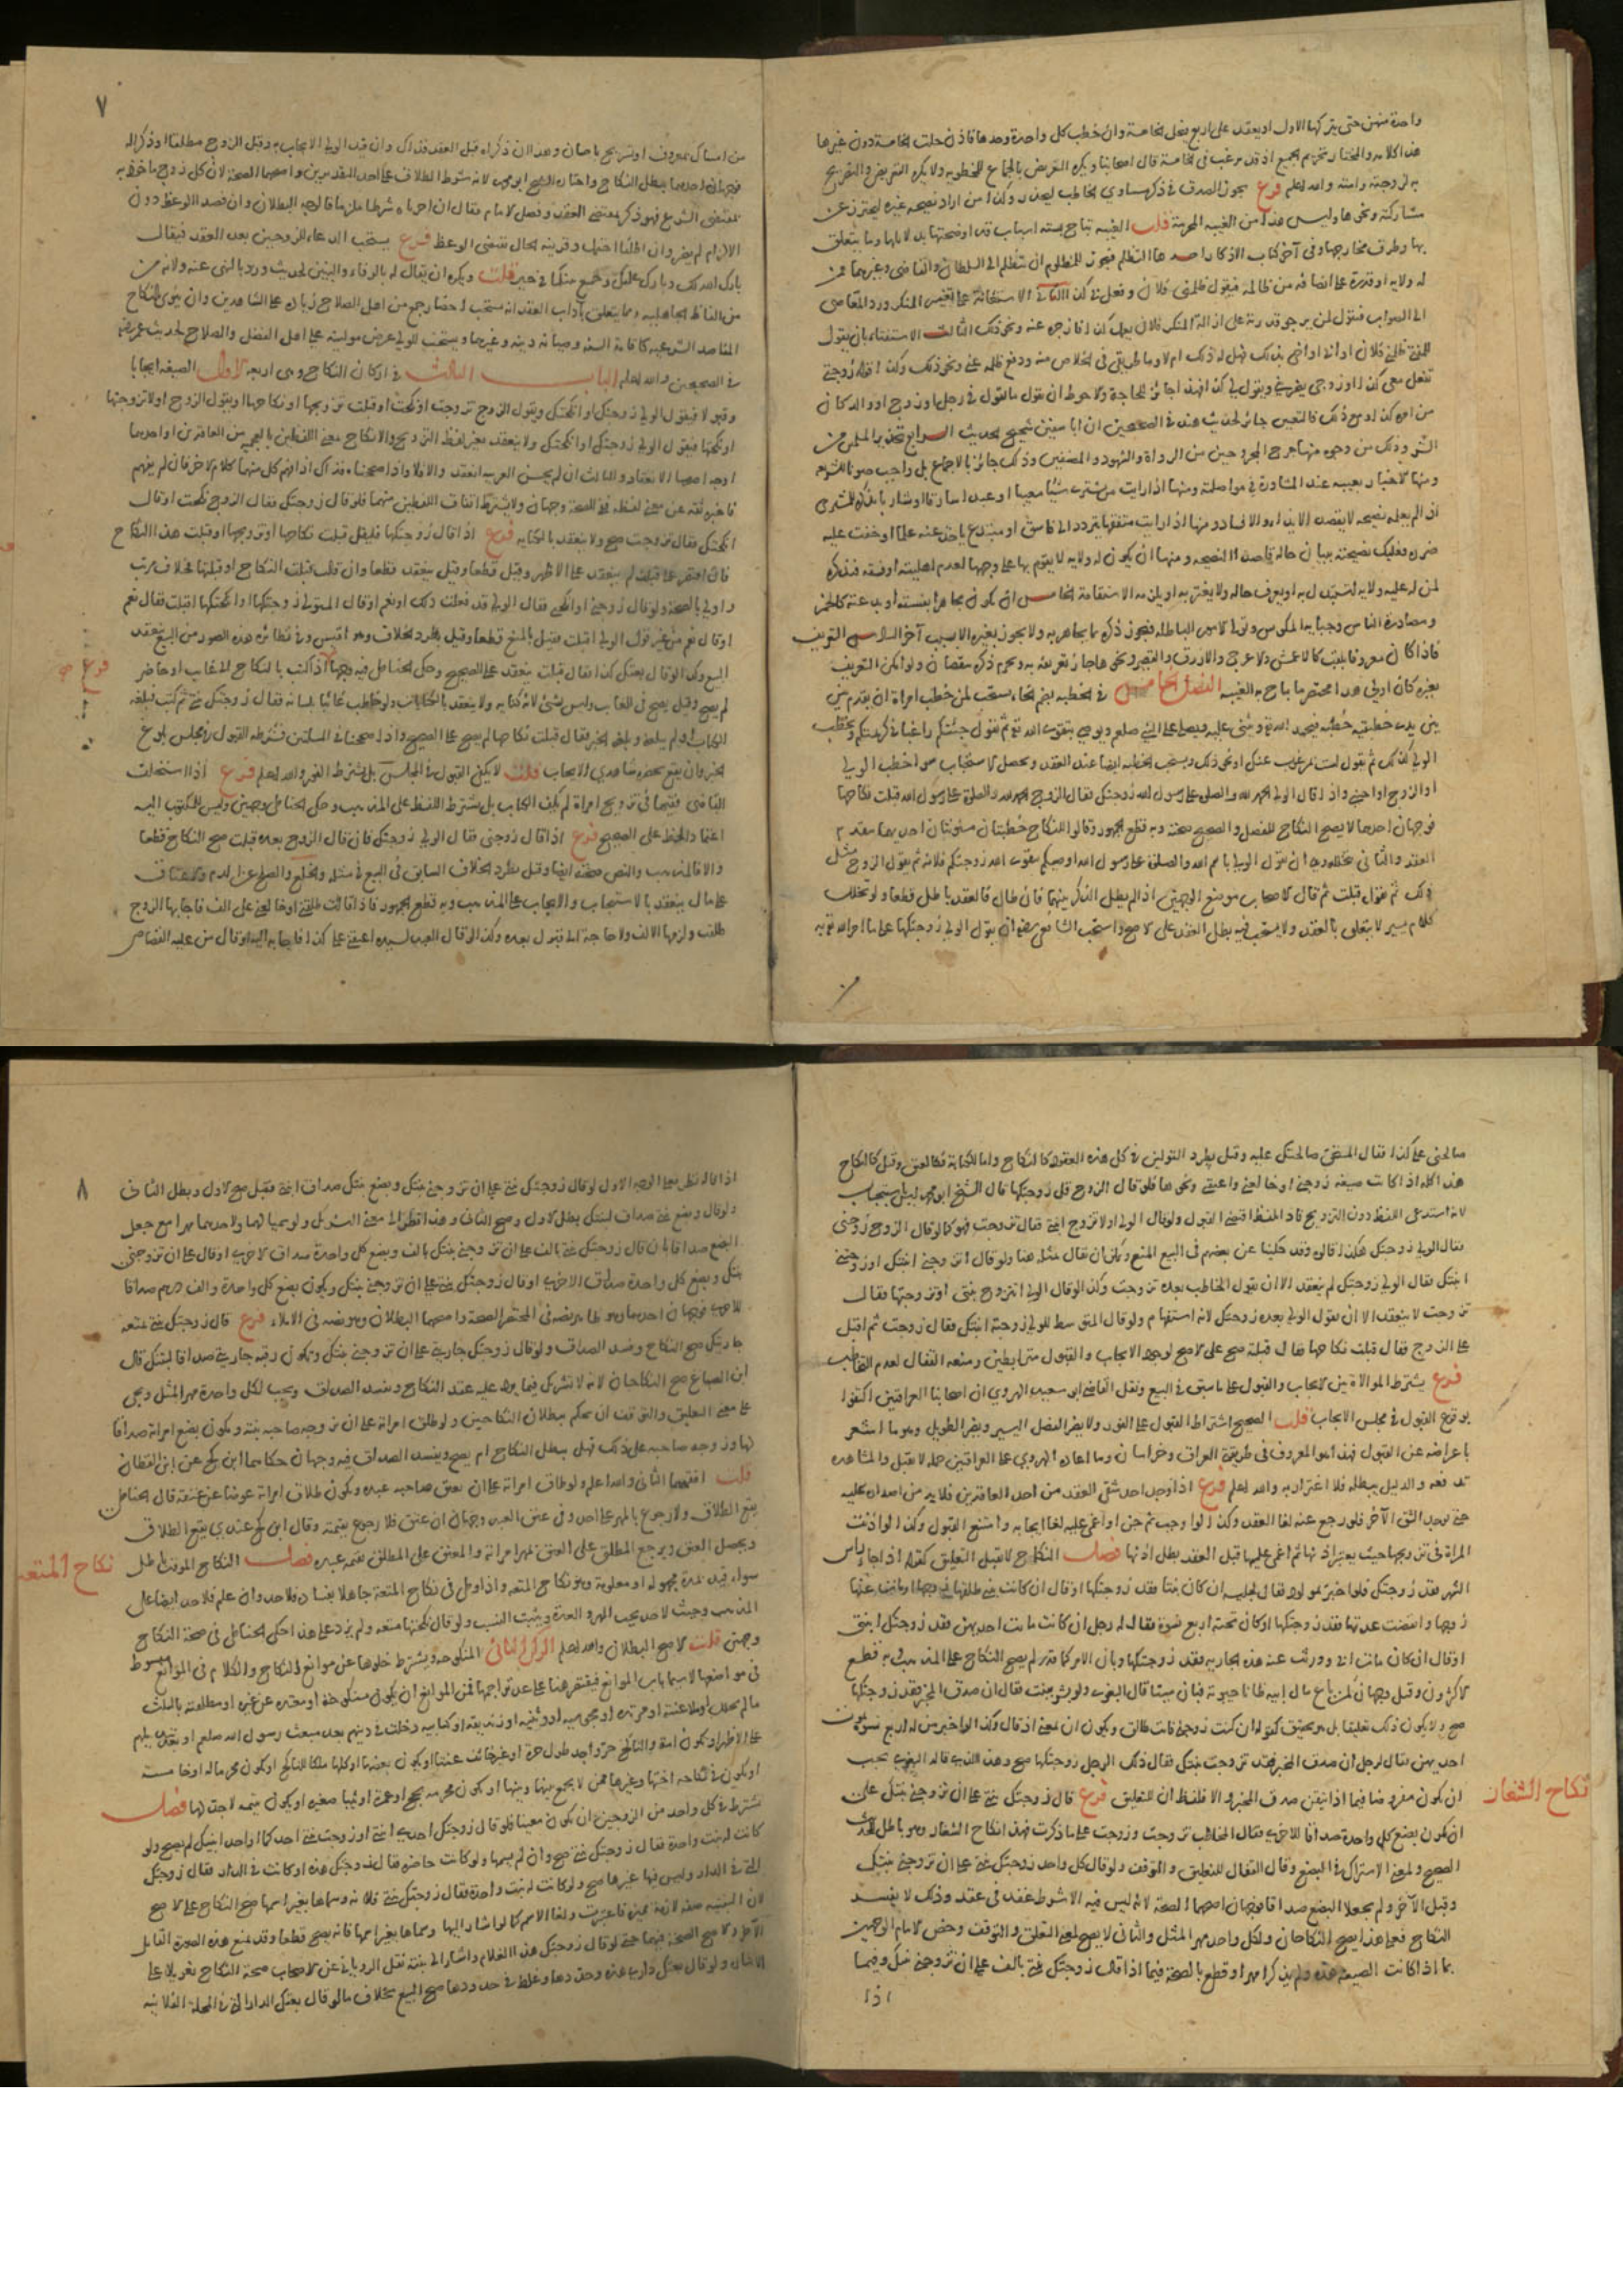 واحدة منهن حتى يتركها الاول او يعقد على اربع فتحل الخامسة وان خطب كل واحدة وحدها فاذن حلت الخامسة دون غيرها
هذا كلامه والمختار تحريم الجميع اذ قد يرغب في الخامسة قال اصحابنا ويكره التعريض بالجماع للمخطوبة ولا يكره التعريض والتصريح
به لزوجته وامته والله اعلم فرع يجوز الصدق في ذكر مساوي الخاطب ليحذر وكذا من اراد نصيحة غيره ليحترز عن
مشاركته ونحوها وليس هذا من الغيبة المحرمة قلت الغيبة تباح بستة اسباب قد اوضحتها بدلايلها وما يتعلق
بها وطرق مخارجها في آخر كتاب الاذكار احدها التظلم فيجوز للمظلوم ان يتظلم الى السلطان والقاضي وغيرهما ممن
له ولاية او قدرة على انصافه من ظالمه فيقول ظلمني فلان وفعل في كذا الثاني الاستعانة على تغيير المنكر ورد العاصي
الى الصواب فيقول لمن يرجو قدرته على ازالة المنكر فلان يعمل كذا فازجره عنه ونحو ذلك الثالث الاستفتاء بان يقول
للمفتي ظلمني فلان او ابي او اخي بكذا فهل له ذلك ام لا وما طريقي في الخلاص منه ودفع ظلمه عني ونحو ذلك وكذا قوله زوجتي
تفعل معي كذا او زوجي يضربني ويقول لي كذا فهذا جائز للحاجة والاحوط ان يقول ما تقول في رجل او زوج او والد كان
من امره كذا ومع ذلك فالتعيين جائز لحديث هند في الصحيحين ان ابا سفين شحيح الحديث الرابع تحذير المسلمين من
الشر وذلك من وجوه منها جرح المجروحين من الرواة والشهود والمصنفين وذلك جائز بالاجماع بل واجب صونا للشريعة
ومنها الاخبار بعيبه عند المشاورة في مواصلته ومنها اذا رايت من يشتري شيئا معيبا او عبدا سارقا او شاربا تذكره للمشتري
اذا لم يعلمه نصيحة لا بقصد الايذاء والافساد ومنها اذا رايت متفقها يتردد الى فاسق او مبتدع ياخذ عنه علما وخفت عليه
ضرره فعليك نصيحته ببيان حاله قاصدا النصيحة ومنها ان يكون له ولاية لا يقوم بها على وجهها لعدم اهليته او فسقه فتذكره
لمن له عليه ولاية ليستبدل به او يعرف حاله ولا يغتر به او يلزمه الاستقامة الخامس ان يكون مجاهرا بفسقه او بدعته كالخمر
ومصادرة الناس وجباية المكوس وتولي الامور الباطلة فيجوز ذكره بما يجاهر به ولا يجوز بغيره الا بسبب آخر السادس التعريف
فاذا كان معروفا بلقب كالاعمش والاعرج والازرق والقصير ونحوها جاز تعريفه به ويحرم ذكره تنقصا ولو امكن التعريف
بغيره كان اولى هذا مختصر ما تباح به الغيبة الفصل الخامس في الخطبة بضم الخاء يستحب لمن خطب امراة ان يقدم بين
يدي خطبته خطبة فيحمد الله تع ويثني عليه ويصلي على النبي صلعم ويوصي بتقوى الله تع ثم يقول جئتكم راغبا في كريمتكم ويخطب
الولي كذلك ثم يقول لست بمرغوب عنك او نحو ذلك ويستحب الخطبة ايضا عند العقد ويحصل الاستحباب سوا خطب الولي
او الزوج او اجنبي واذا قال الولي الحمد لله والصلوة على رسول الله زوجتك فقال الزوج الحمد لله والصلوة على رسول الله قبلت نكاحها
فوجهان احدهما لا يصح النكاح للفصل والصحيح صحته وبه قطع الجمهور وقالوا للنكاح خطبتان مسنونتان احديهما تتقدم
العقد والثانية تتخلله وهي ان يقول الولي باسم الله والصلوة على رسول الله اوصيكم بتقوى الله زوجتكم فلانة ثم يقول الزوج مثل
ذلك ثم يقول قبلت ثم قال الاصحاب موضع الوجهين اذا لم يطل الذكر بينهما فان طال فالعقد باطل قطعا ولو تخلل
كلام يسير لا يتعلق بالعقد ولا يستحب فيه بطل العقد على الاصح واستحب الشافعي رضه ان يقول الولي زوجتكها على ما امر الله تع به
٧
من امساك بمعروف او تسريح باحسان وهذا ان ذكراه قبل العقد فذاك وان قيد الولي الايجاب به وقبل الزوج مطلقا او ذكراه
فوجهان احدهما يبطل النكاح واختاره الشيخ ابو محمد لانه شرط الطلاق على احد التقديرين واصحهما الصحة لان كل زوج ماخوذ به
بمقتضى الشرع فهو ذكر لمقتضى العقد وفصل الامام فقال ان اجرياه شرطا ملزما فالوجه البطلان وان قصدا الوعظ دون
الالزام لم يضر وان اطلقا احتمل وقرينة الحال تقتضي الوعظ فرع يستحب الدعاء للزوجين بعد العقد فيقال
بارك الله لك وبارك عليك وجمع بينكما في خير قلت ويكره ان يقال له بالرفاء والبنين لحديث ورد بالنهي عنه ولانه من
من الفاظ الجاهلية ومما يتعلق بآداب العقد انه يستحب احضار جمع من اهل الصلاح زيادة على الشاهدين وان ينوي بالنكاح
المقاصد الشرعية كاقامة السنة وصيانة دينه وغيرهما ويستحب للولي عرض موليته على اهل الفضل والصلاح لحديث عمر رضه
في الصحيحين والله اعلم الباب الثالث في اركان النكاح وهي اربعة الاول الصيغة ايجابا
وقبولا فيقول الولي زوجتك او انكحتك ويقول الزوج تزوجت او نكحت او قبلت تزويجها او نكاحها او يقول الزوج اولا تزوجتها
او نكحتها فيقول الولي زوجتك او انكحتك ولا ينعقد بغير لفظ التزويج والانكاح معنى اللفظين بالعجمية من العاقدين او احدهما
اوجه اصحها الانعقاد والثالث ان لم يحسن العربية انعقد والا فلا واذا صححناه فذاك اذا فهم كل منهما كلام الاخر فان لم يفهم
فاخبره ثقة عن معنى لفظه ففي الصحة وجهان ولا يشترط اتفاق اللفظين منهما فلو قال زوجتك فقال الزوج نكحت او قال
انكحتك فقال تزوجت صح ولا ينعقد بالكناية فرع اذا قال زوجتكها فليقل قبلت نكاحها او تزويجها او قبلت هذا النكاح
فان اقتصر على قبلت لم ينعقد على الاظهر وقيل قطعا وقيل ينعقد قطعا وان قال قبلت النكاح او قبلتها فخلاف مرتب
واولى بالصحة ولو قال زوجني او انكحني فقال الولي قد فعلت ذلك او نعم او قال الولي زوجتكها او انكحتكها اقبلت فقال نعم
او قال نعم من غير قول الولي اقبلت فقيل بالمنع قطعا وقيل بطرد الخلاف وهو اقيس وفي نظائر هذه الصور من البيع ينعقد
البيع وكذا لو قال بعتك كذا فقال قبلت ينعقد على الصحيح وحكى الحناطي فيه وجها اذا كتب بالنكاح الى غائب او حاضر
فرع صح
لم يصح وقيل يصح في الغائب وليس بشيء لانه كناية ولا ينعقد بالكنايات ولو خاطب غائبا بلسانه فقال زوجتك بنتي ثم كتب فبلغه
الكتاب او لم يبلغه وبلغه الخبر فقال قبلت نكاحها لم يصح على الصحيح واذا صححنا في المسلتين فشرطه القبول في مجلس بلوغ
الخبر وان يقع بحضرة شاهدي الايجاب قلت لا يكفي القبول في المجلس بل يشترط الفور والله اعلم فرع اذا استخلف
القاضي فقيها في تزويج امراة لم يكف الكتاب بل يشترط اللفظ على المذهب وحكى الحناطي وجهين وليس للمكتوب اليه
اعتماد الخط على الصحيح فرع اذا قال زوجني فقال الولي زوجتك فان قال الزوج بعده قبلت صح النكاح قطعا
والا فالمذهب والنص صحته ايضا وقيل بطرد الخلاف السابق في البيع في مثله والخلع والصلح عن الدم والاعتاق
على مال ينعقد بالاستيجاب والايجاب على المذهب وبه قطع الجمهور فاذا قالت طلقني او خالعني على الف فاجابها الزوج
طلقت ولزمها الالف ولا حاجة الى قبول بعده وكذا لو قال العبد لسيده اعتقني على كذا فاجابه او قال من عليه القصاص
صالحني على كذا فقال المستحق صالحتك عليه وقيل بطرد القولين في كل هذه العقود كالنكاح واما الكتابة فكالعتق وقيل كالنكاح
هذا كله اذا كانت صيغته زوجني او خالعني واعتقني ونحوها فلو قال الزوج قل زوجتكها قال الشيخ ابو محمد ليس باستيجاب
لانه استدعى اللفظ دون التزويج فاذا لفظ اقتضى القبول ولو قال الولي اولا تزوج ابنتي فقال تزوجت فهو كما لو قال الزوج زوجني
فقال الولي زوجتك هكذا قالوه وقد حكينا عن بعضهم في البيع المنع ويمكن ان يقال مثله هنا ولو قال اتزوجني ابنتك او زوجتني
ابنتك فقال الولي زوجتك لم ينعقد الا ان يقول الخاطب بعده تزوجت وكذا لو قال الولي اتتزوج بنتي او تزوجتها فقال
تزوجت لا ينعقد الا ان يقول الولي بعده زوجتك لانه استفهام ولو قال المتوسط للولي زوجته ابنتك فقال زوجت ثم اقبل
على الزوج فقال قبلت نكاحها فقال قبلت صح على الاصح لوجود الايجاب والقبول مترابطين ومنعه القفال لعدم التخاطب
فرع يشترط الموالاة بين الايجاب والقبول على ما سبق في البيع ونقل القاضي ابو سعيد الهروي ان اصحابنا العراقيين اكتفوا
بوقوع القبول في مجلس الايجاب قلت الصحيح اشتراط القبول على الفور ولا يضر الفصل اليسير ويضر الطويل وهو ما اشعر
باعراضه عن القبول فهذا هو المعروف في طريقي العراق وخراسان وما ادعاه الهروي على العراقيين جملة لا يقبل والمشاهدة
تدفعه والدليل يبطله فلا اغترار به والله اعلم فرع اذا وجد احد شقي العقد من احد العاقدين فلا بد من اصراره عليه
حتى يوجد الشق الآخر فلو رجع عنه لغا العقد وكذا لو اوجب ثم جن او اغمي عليه لغا ايجابه وامتنع القبول وكذا لو اذنت
المراة في تزويجها حيث يعتبر اذنها ثم اغمي عليها قبل العقد بطل اذنها فصل النكاح لا يقبل التعليق كقوله اذا جاء راس
الشهر فقد زوجتك فلو اخبر بمولود فقال لجليسه ان كان بنتا فقد زوجتكها او قال ان كانت بنتي طلقها زوجها او مات عنها
زوجها وانقضت عدتها فقد زوجتكها او كان تحته اربع نسوة فقال له رجل ان كانت ماتت احديهن فقد زوجتك ابنتي
او قال ان كان مات ابي وورثت عنه هذه الجارية فقد زوجتكها وبان الامر كما قدر لم يصح النكاح على المذهب وبه قطع
الاكثرون وقيل وجهان كمن باع مال ابيه ظانا حيوته فبان ميتا قال البغوي ولو بشر ببنت فقال ان صدق المخبر فقد زوجتكها
صح ولا يكون ذلك تعليقا بل هو تحقيق كقوله ان كنت زوجتي فانت طالق ويكون ان بمعنى اذ قال وكذا لو اخبر من له اربع نسوة بموت
احديهن فقال لرجل ان صدق المخبر فقد تزوجت بنتك فقال ذلك الرجل زوجتكها صح وهذا الذي قاله البغوي يجب
ان يكون مفروضا فيما اذا تيقن صدق المخبر والا فلفظ ان للتعليق فرع قال زوجتك بنتي على ان تزوجني بنتك على
نكاح الشغار
ان يكون بضع كل واحدة صداقا للاخرى فقال المخاطب تزوجت وزوجت على ما ذكرت فهذا نكاح الشغار وهو باطل للحديث
الصحيح ولمعنى الاشتراك في البضع وقال القفال للتعليق والتوقف ولو قال كل واحد زوجتك بنتي على ان تزوجني بنتك
وقبل الآخر ولم يجعلا البضع صداقا فوجهان اصحهما الصحة لانه ليس فيه الا شرط عقد في عقد وذلك لا يفسد
النكاح فعلى هذا يصح النكاحان ولكل واحد مهر المثل والثاني لا يصح لمعنى التعليق والتوقف وخص الامام الوجهين
بما اذا كانت الصيغة هذه ولم يذكرا مهرا وقطع بالصحة فيما اذا قال زوجتك بنتي بالف على ان تزوجني بنتك وفيما
اذا
٨
اذا قاله نظر معنى الوجه الاول لو قال زوجتك بنتي على ان تزوجني بنتك وبضع بنتك صداق ابنتي فقبل صح الاول وبطل الثاني
ولو قال وبضع بنتي صداق لبنتك بطل الاول وصح الثاني وهذا نظر الى معنى التشريك ولو سميا لهما ولاحديهما مهرا مع جعل
البضع صداقا بان قال زوجتك بنتي بالف على ان تزوجني بنتك بالف وبضع كل واحدة صداق الاخرى او قال على ان تزوجني
بنتك وبضع كل واحدة صداق الاخرى او قال زوجتك بنتي على ان تزوجني بنتك ويكون بضع كل واحدة والف درهم صداقا
للاخرى فوجهان احدهما وهو ظاهر نصه في المختصر الصحة واصحهما البطلان وهو نصه في الاملاء فرع قال زوجتك بنتي بمتعة
جاريتك صح النكاح وفسد الصداق ولو قال زوجتك جاريتي على ان تزوجني بنتك وتكون رقبة جاريتي صداقا لبنتك قال
ابن الصباغ صح النكاحان لانه لا تشريك فيما يرد عليه عقد النكاح ويفسد الصداق ويجب لكل واحدة مهر المثل ويجي
على معنى التعليق والتوقف ان يحكم ببطلان النكاحين ولو طلق امراته على ان يزوجه صاحبه بنته ويكون بضع امراته صداقا
لها وزوجه صاحبه على ذلك فهل يبطل النكاح ام يصح ويفسد الصداق فيه وجهان حكاهما ابن كج عن ابن القطان
قلت افقههما الثاني والله اعلم ولو طلق امراته على ان يعتق صاحبه عبده ويكون طلاق امراته عوضا عن عتقه قال الحناطي
يقع الطلاق ولا رجوع بالمهر على احد وفي عتق العبد وجهان ان عتق فلا رجوع بقيمته وقال ابن كج عندي يقع الطلاق
ويحصل العتق ويرجع المطلق على المعتق بمهر امراته والمعتق على المطلق بقيمة عبده فصل النكاح الموقت باطل
نكاح المتعة
سواء قيده بمدة مجهولة او معلومة وهو نكاح المتعة واذا وطئ في نكاح المتعة جاهلا بفساده فلا حد وان علم فلا حد ايضا على
المذهب وحيث لا حد يجب المهر والعدة ويثبت النسب ولو قال نكحتها متعة ولم يزد على هذا حكى الحناطي في صحة النكاح
وجهين قلت الاصح البطلان والله اعلم الركن الثاني المنكوحة ويشترط خلوها عن موانع النكاح والكلام في الموانع مبسوط
في مواضعها لا سيما باب الموانع فيقتصر هنا على عد تراجمها فمن الموانع ان تكون منكوحة او معتدة عن غيره او مطلقته بالثلث
ما لم تحلل او ملاعنته او مرتدة او مجوسية او وثنية او زنديقة او كتابية دخلت في دينهم بعد مبعث رسول الله صلعم او
على الاظهر او تكون امة والناكح حر واجد طول حرة او غير خائف عنتا او يكون بعضها او كلها ملكا للناكح او يكون محرما له او خامسة
او يكون في نكاحه اختها وغيرها ممن لا يجمع بينها وبينها او يكون محرمة بحج او عمرة او ثيبا صغيرة او يكون يتيمة لا جد لها فصل
يشترط في كل واحد من الزوجين ان يكون معينا فلو قال زوجتك احدى ابنتي او زوجت بنتي احدكما او احد ابنيك لم يصح ولو
كانت له بنت واحدة فقال زوجتك بنتي صح وان لم يسمها ولو كانت حاضرة فقال زوجتك هذه او كانت في الدار فقال زوجتك
التي في الدار وليس فيها غيرها صح ولو كانت له بنت واحدة فقال زوجتك بنتي فلانة وسماها بغير اسمها صح النكاح على الاصح
لان البنتية صفة لازمة مميزة فاعتبرت ولغا الاسم كما لو اشار اليها وسماها بغير اسمها فانه يصح قطعا وقد يمنع هذه الصورة القائل
الآخر والاصح الصحة فيهما حتى لو قال زوجتك هذا الغلام واشار الى بنته نقل الروياني عن الاصحاب صحة النكاح تعويلا على
الاشارة ولو قال بعتك داري هذه وحددها وغلط في حدودها صح البيع بخلاف ما لو قال بعتك الدار التي في المحلة الفلانية